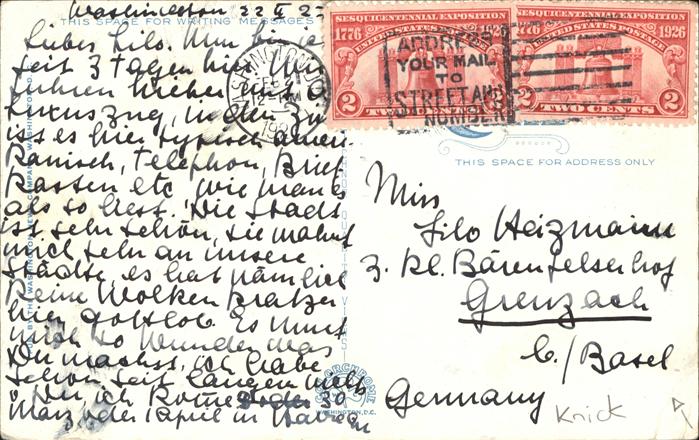 Washington 22 II 27
THIS SPACE FOR WRITING MESSAGES
Liebes Lilo. Nun bin ich
seit 3 Tagen hier. Wir
fuhren hieher mit
Luxuszug, in den Zim
ist es hier typisch ameri
kanisch, Telephon, Brief
kasten etc wie man es
als so liest. Die Stadt
ist sehr schön, sie mahnt
mich sehr an unsere
Städte, es hat nämlich
keine Wolkenkratzer
hier gottlob. Es nimmt
mich so wunder was
Du machst, ich habe
schon seit langem nichts
März oder April in
SESQUICENTENNIAL EXPOSITION
1776 1926
UNITED STATES POSTAGE
2 TWO CENTS 2
SESQUICENTENNIAL EXPOSITION
1776 1926
UNITED STATES POSTAGE
2 TWO CENTS 2
WASHINGTON
FEB
ADDRESS
YOUR MAIL
TO
STREET AND
NUMBER
THIS SPACE FOR ADDRESS ONLY
Miss
Lilo Heizmann
z. Kl. Bärenfelserhof
Grenzach
b./Basel
Germany
Knick
WASHINGTON, D.C.